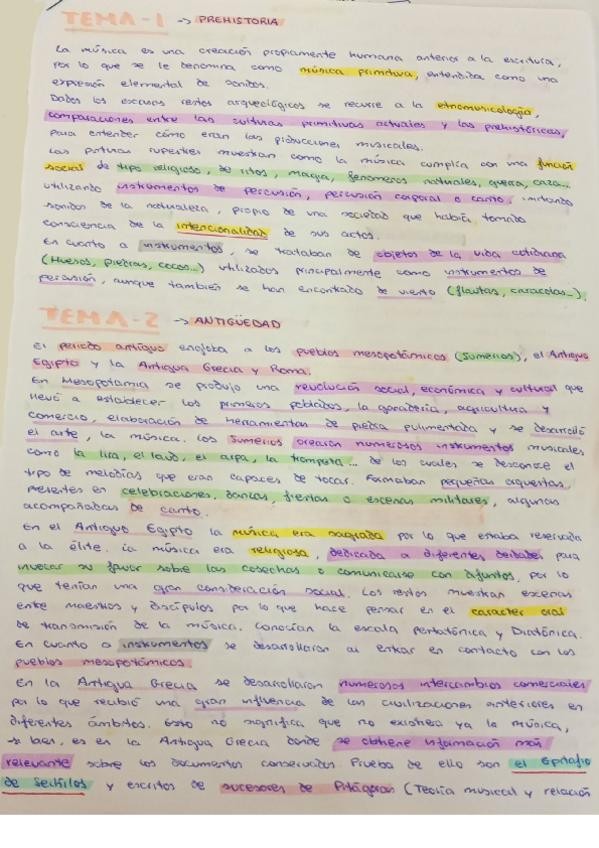 TEMA-1 -> PREHISTORIA
La música es una creación propiamente humana anterior a la escritura,
por lo que se le denomina como música primitiva, entendida como una
expresión elemental de sonidos.
Dados los escasos restos arqueológicos se recurre a la etnomusicología,
comparaciones entre las culturas primitivas actuales y las prehistóricas,
para entender cómo eran las producciones musicales.
Las pinturas rupestres muestran como la música cumplía con una función
social de tipo religioso, de ritos, magia, fenómenos naturales, guerra, caza...
utilizando instrumentos de percusión, percusión corporal o canto, imitando
sonidos de la naturaleza, propio de una sociedad que había tomado
consciencia de la intencionalidad de sus actos.
En cuanto a instrumentos, se trataban de objetos de la vida cotidiana
(Huesos, piedras, cocos...) utilizados principalmente como instrumentos de
percusión, aunque también se han encontrado de viento (flautas, caracolas...).
TEMA-2 -> ANTIGÜEDAD
El periodo antiguo engloba a los pueblos mesopotámicos (Sumerios), el Antiguo
Egipto y la Antigua Grecia y Roma.
En Mesopotamia se produjo una revolución social, económica y cultural que
llevó a establecer los primeros poblados, la ganadería, agricultura y
comercio, elaboración de herramientas de piedra pulimentada y se desarrolló
el arte, la música. Los Sumerios crearon numerosos instrumentos musicales
como la lira, el laud, el arpa, la trompeta... de los cuales se desconoce el
tipo de melodías que eran capaces de tocar. Formaban pequeñas orquestas,
presentes en celebraciones, danzas, fiestas o escenas militares, algunas
acompañadas de canto.
En el Antiguo Egipto la música era sagrada por lo que estaba reservada
a la élite. La música era religiosa, dedicada a diferentes deidades para
invocar su favor sobre las cosechas o comunicarse con difuntos, por lo
que tenían una gran consideración social. Los restos muestran escenas
entre maestros y discípulos por lo que hace pensar en el caracter oral
de transmisión de la música. Conocían la escala pentatónica y Diatónica.
En cuanto a instrumentos se desarrollaron al entrar en contacto con los
pueblos mesopotámicos.
En la Antigua Grecia se desarrollaron numerosos intercambios comerciales
por lo que recibió una gran influencia de las civilizaciones anteriores en
diferentes ámbitos. Esto no significa que no existiera ya la música,
si bien, es en la Antigua Grecia donde se obtiene información más
relevante sobre los documentos conservados. Prueba de ello son el Epitafio
de Seikilos y escritos de sucesores de Pitágoras (Teoría musical y relación